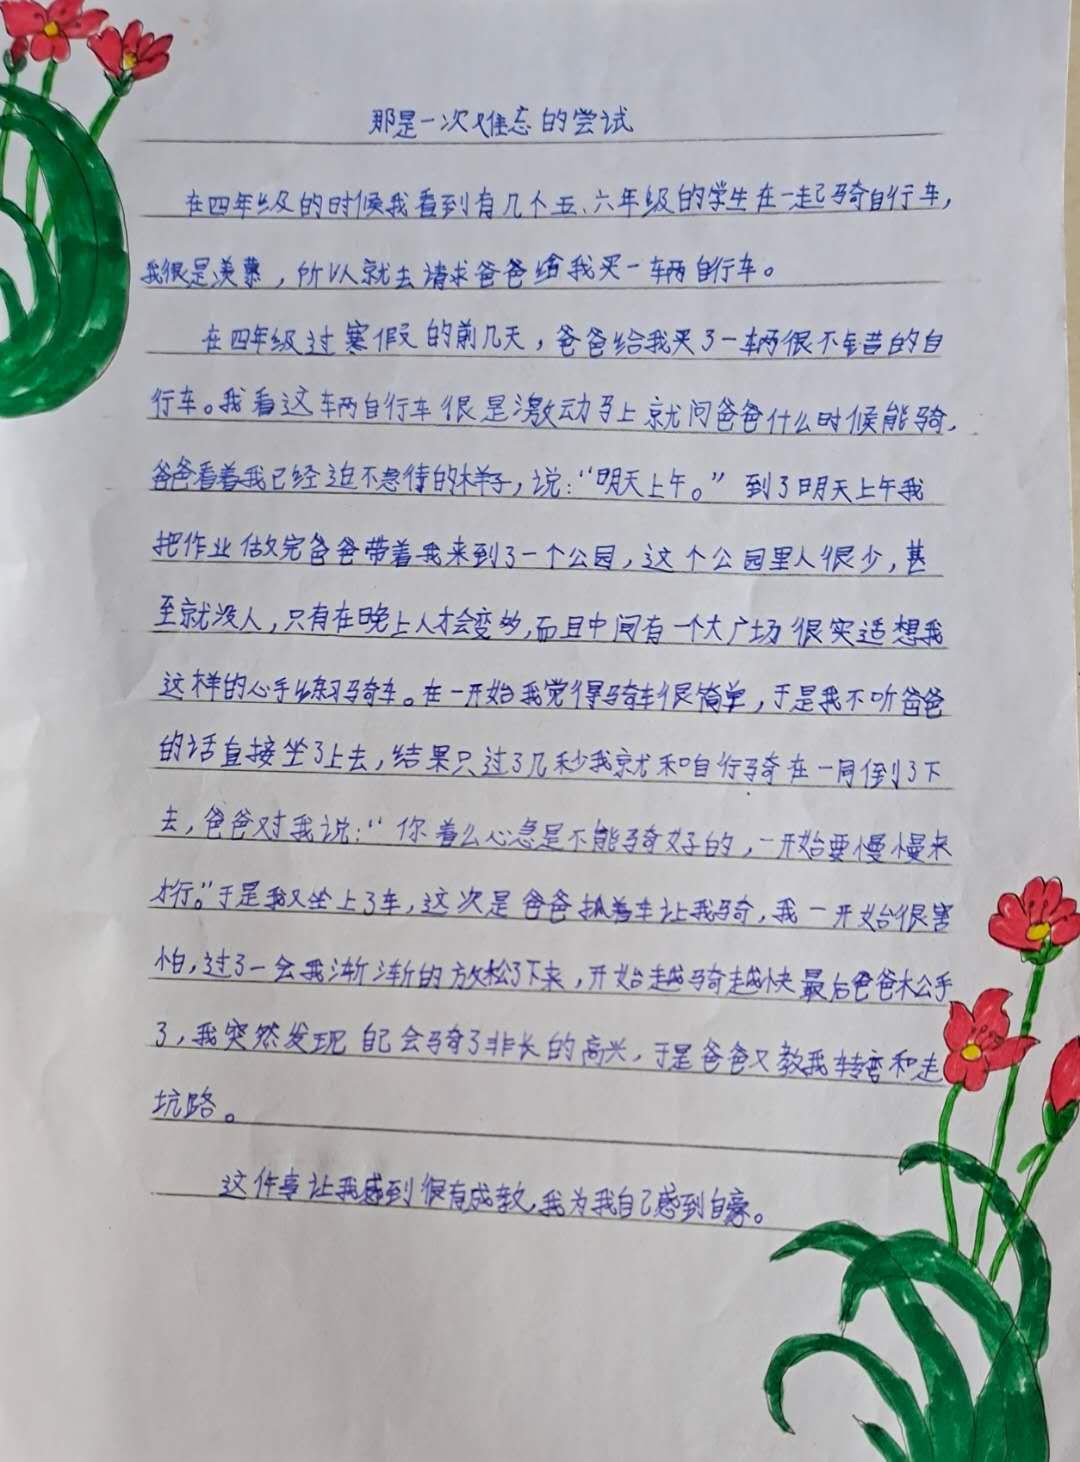 那是一次难忘的尝试
在四年级的时候我看到有几个五、六年级的学生在一起骑自行车，
我很是羡慕，所以人就去请求爸爸给我买一辆自行车。
在四年级过寒假的前几天，爸爸给我买了一辆很不错的自
行车。我看这辆自行车很是激动马上就问爸爸什么时候能骑，
爸爸看着我已经迫不急待的样子，说：“明天上午。”到了明天上午我
把作业做完爸爸带着我来到了一个公园，这个公园里人很少，甚
至就没人，只有在晚上人才会变多，而且中间有一个大广场很实适想我
这样的心手练习骑车。在一开始我觉得骑车很简单，于是我不听爸爸
的话直接坐了上去，结果只过了几秒我就和自行骑在一同倒了下
去，爸爸对我说：“你着么心急是不能骑好的，一开始要慢慢来
才行。”于是我又坐上了车，这次是爸爸抓着车让我骑，我一开始很害
怕，过了一会我渐渐的放松了下来，开始越骑越快最后爸爸松手
了，我突然发现自己会骑了非长的高兴，于是爸爸又教我转弯和走
坑路。
这件事让我感到很有成教，我为我自己感到自豪。